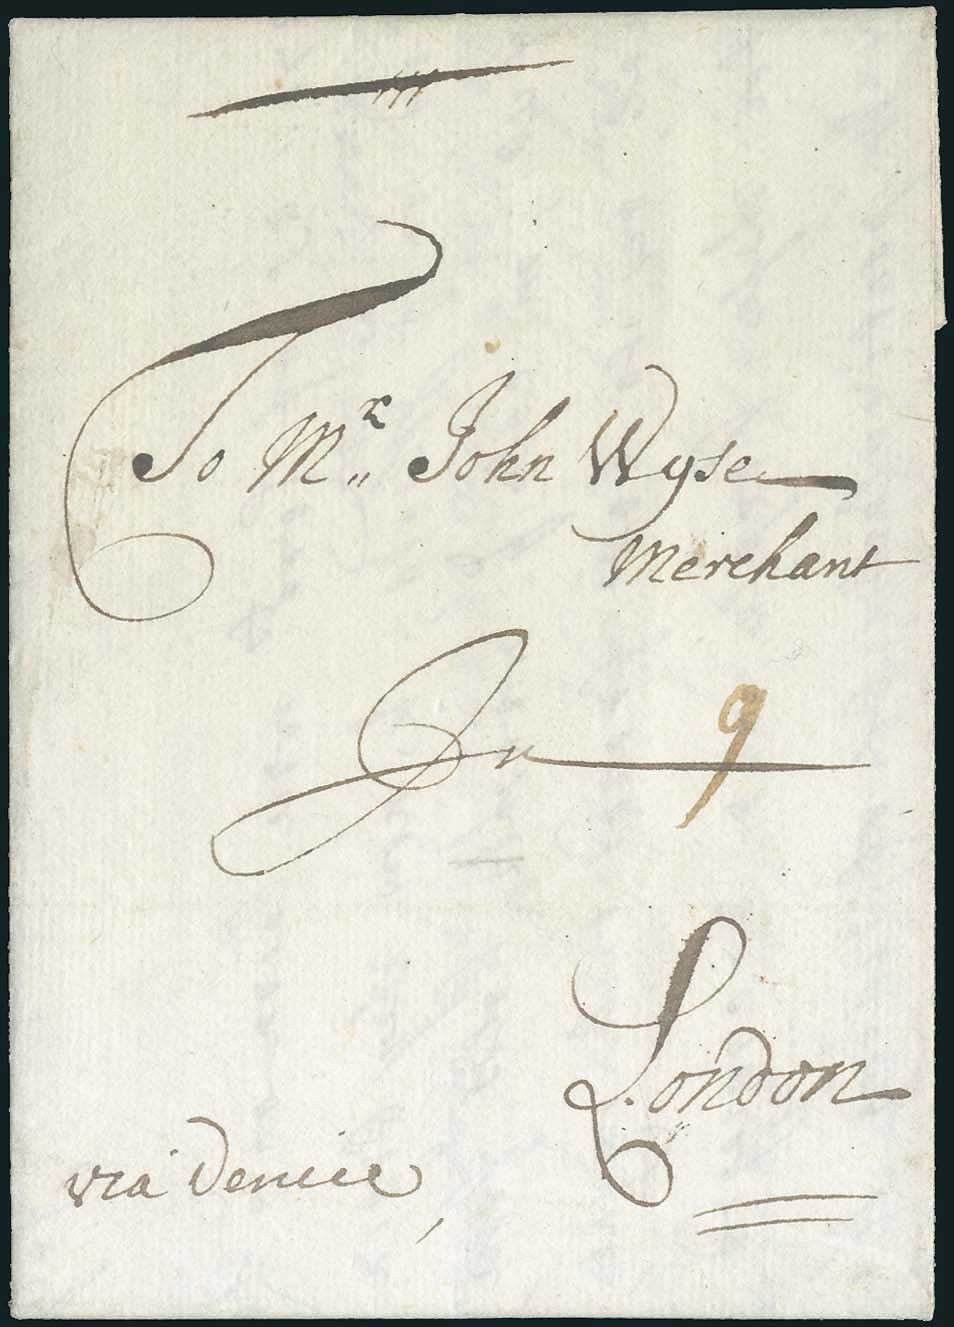 To Mr John Wyse
Merchant
In 9
London
via Venice